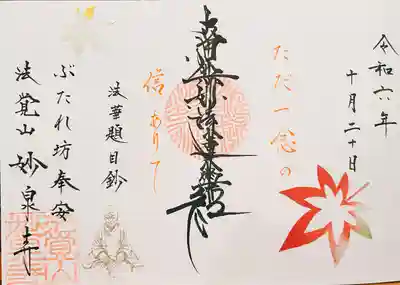 令和六年
十月二十日
ただ一念の
南無妙法蓮華経
信ありて
法華題目鈔
ぶたれ坊奉安
法覚山 妙泉寺